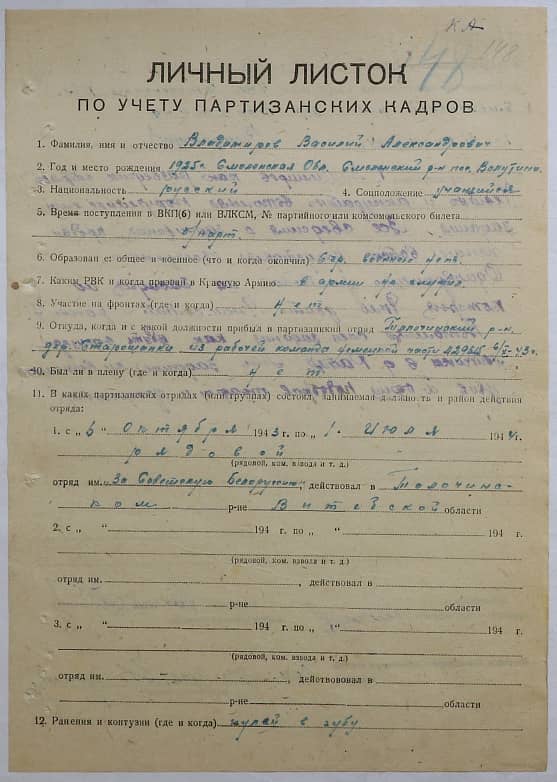 К А
148
ЛИЧНЫЙ ЛИСТОК
ПО УЧЕТУ ПАРТИЗАНСКИХ КАДРОВ
1. Фамилия, имя и отчество Владимиров Василий Александрович
2. Год и место рождения 1925 г. Смоленская Обл. Смоленский р-н пос.
3. Национальность русский 4. Соцположение учащийся
5. Время поступления в ВКП(б) или ВЛКСМ, № партийного или комсомольского билета
б/парт.
6. Образование: общее и военное (что и когда окончил) 6 кл. военного нет.
7. Каким РВК и когда призван в Красную Армию в армии не служил
8. Участие на фронтах (где и когда) Нет
9. Откуда, когда и с какой должности прибыл в партизанский отряд р-н
дер. Старошенки из рабочей команды немецкой части
10. Был ли в плену (где и когда) нет
11. В каких партизанских отрядах (бригадах) состоял, занимаемая должность и район действия
отряда:
1. с „ 6 “ Октября 1943 г. по „ 1 “ Июля 1944 г.
рядовой
(рядовой, ком. взвода и т. д.)
отряд им. За Советскую Белоруссию, действовал в Толочинс-
ком р-не Витебской области
2. с „ “ 194 г. по „ “ 194 г.
(рядовой, ком. взвода и т. д.)
отряд им. , действовал в
р-не области
3. с „ “ 194 г. по „ “ 194 г.
(рядовой, ком. взвода и т. д.)
отряд им. , действововал в
р-не области
12. Ранения и контузии (где и когда)